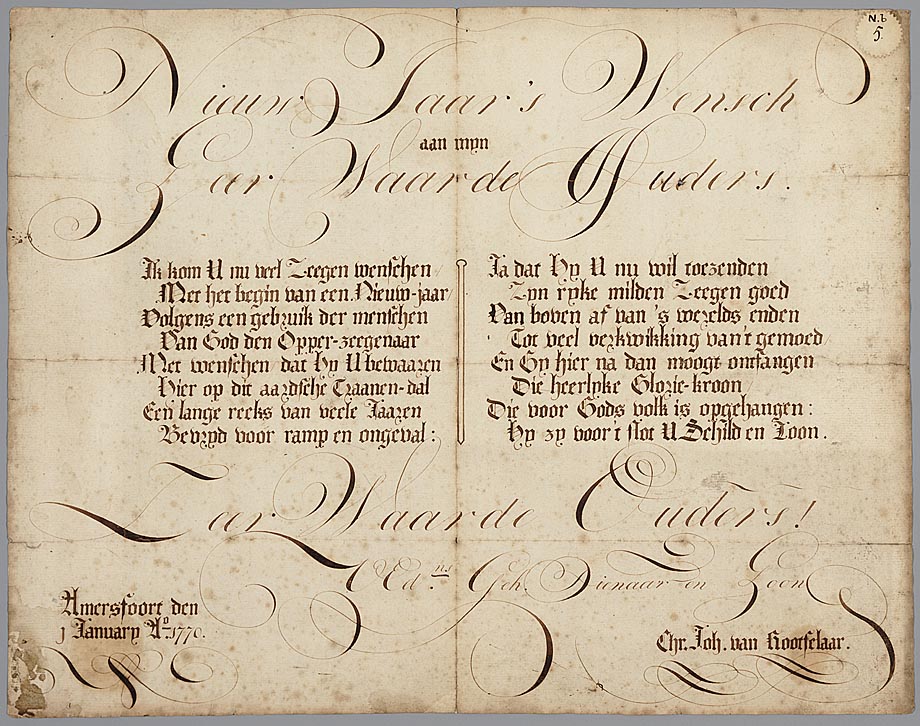 N.b
5.
Nieuw Jaar's Wensch
aan mijn
Zeer Waarde Ouders.
Ik kom U nu veel Zeegen wenschen
Met het begin van een Nieuw-jaar
Volgens een gebruik der menschen
Van God den Opper-zeegenaar
Met wenschen dat Hy U bewaaren
Hier op dit aardsche Traanen-dal
Een lange reeks van veele Jaaren
Bevryd voor ramp en ongeval:
Ja dat Hy U nu wil toezenden
Zyn ryke milden Zeegen goed
Van boven af van 's werelds enden
Tot veel verkwikking van 't gemoed
En Gy hier na dan moogt omfangen
Die heerlyke Glorie-kroon
Die voor Gods volk is opgehangen:
Hy zy voor 't slot U Schild en Loon.
Zeer Waarde Ouders!
UEd.ns Geh. Dienaar en Zoon
Amersfoort den
1 January Ao 1770.
Chr. Joh. van Rootselaar.